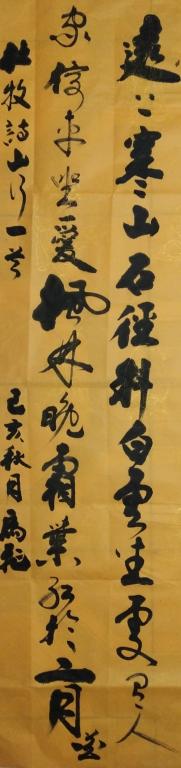 遠上寒山石徑斜白雲生處有人
家停車坐愛楓林晚霜葉紅於二月花
杜牧詩山行一首
己亥秋月